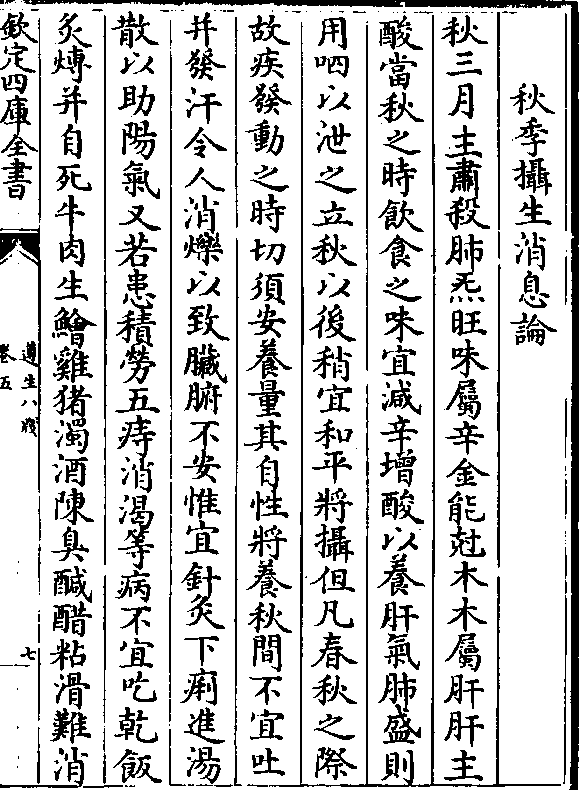 秋季攝生消息論
秋三月主肅殺肺炁旺味屬辛金能尅木木屬肝肝主
酸當秋之時飲食之味宜減辛增酸以養肝氣肺盛則
用呬以泄之立秋以後稍宜和平將攝但凡春秋之際
故疾發動之時切須安養量其自性將養秋間不宜吐
并發汗令人消爍以致臟腑不安惟宜針灸下痢進湯
散以助陽氣又若患積勞五痔消渴等病不宜吃乾飯
炙煿并自死牛肉生鱠雞猪濁酒陳臭鹹醋粘滑難消
欽定四庫全書
遵生八牋
卷五
七